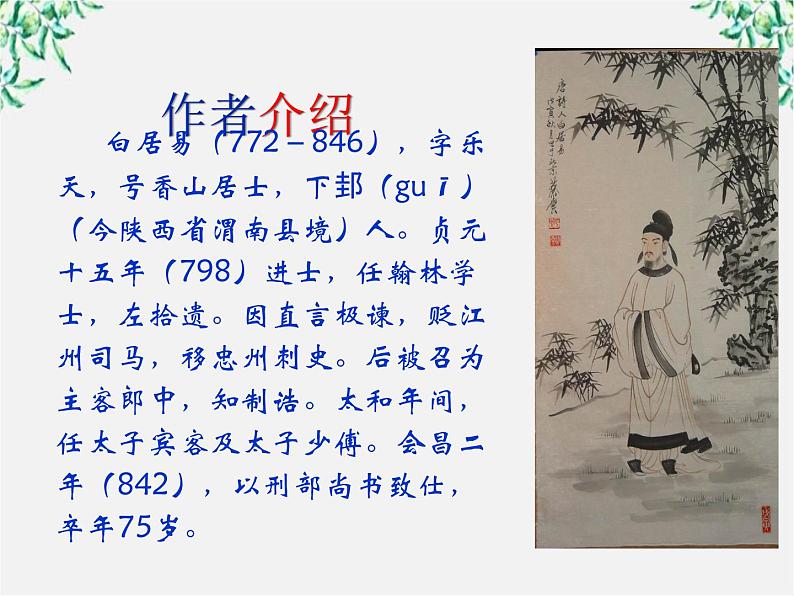 作者介绍
白居易（772－846），字乐
天，号香山居士，下邽（guī）
（今陕西省渭南县境）人。贞元
十五年（798）进士，任翰林学
士，左拾遗。因直言极谏，贬江
州司马，移忠州刺史。后被召为
主客郎中，知制诰。太和年间，
任太子宾客及太子少傅。会昌二
年（842），以刑部尚书致仕，
卒年75岁。
唐诗人白居易